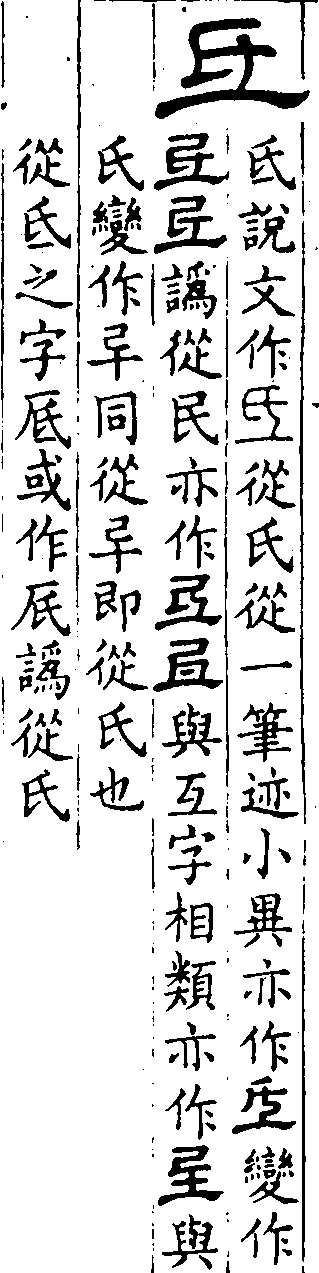 氐
氐說文作氐從氏從一筆迹小異亦作𠀆變作
譌從民亦作與互字相類亦作與
氏變作同從即從氏也
從氐之字厎或作厎譌從氏